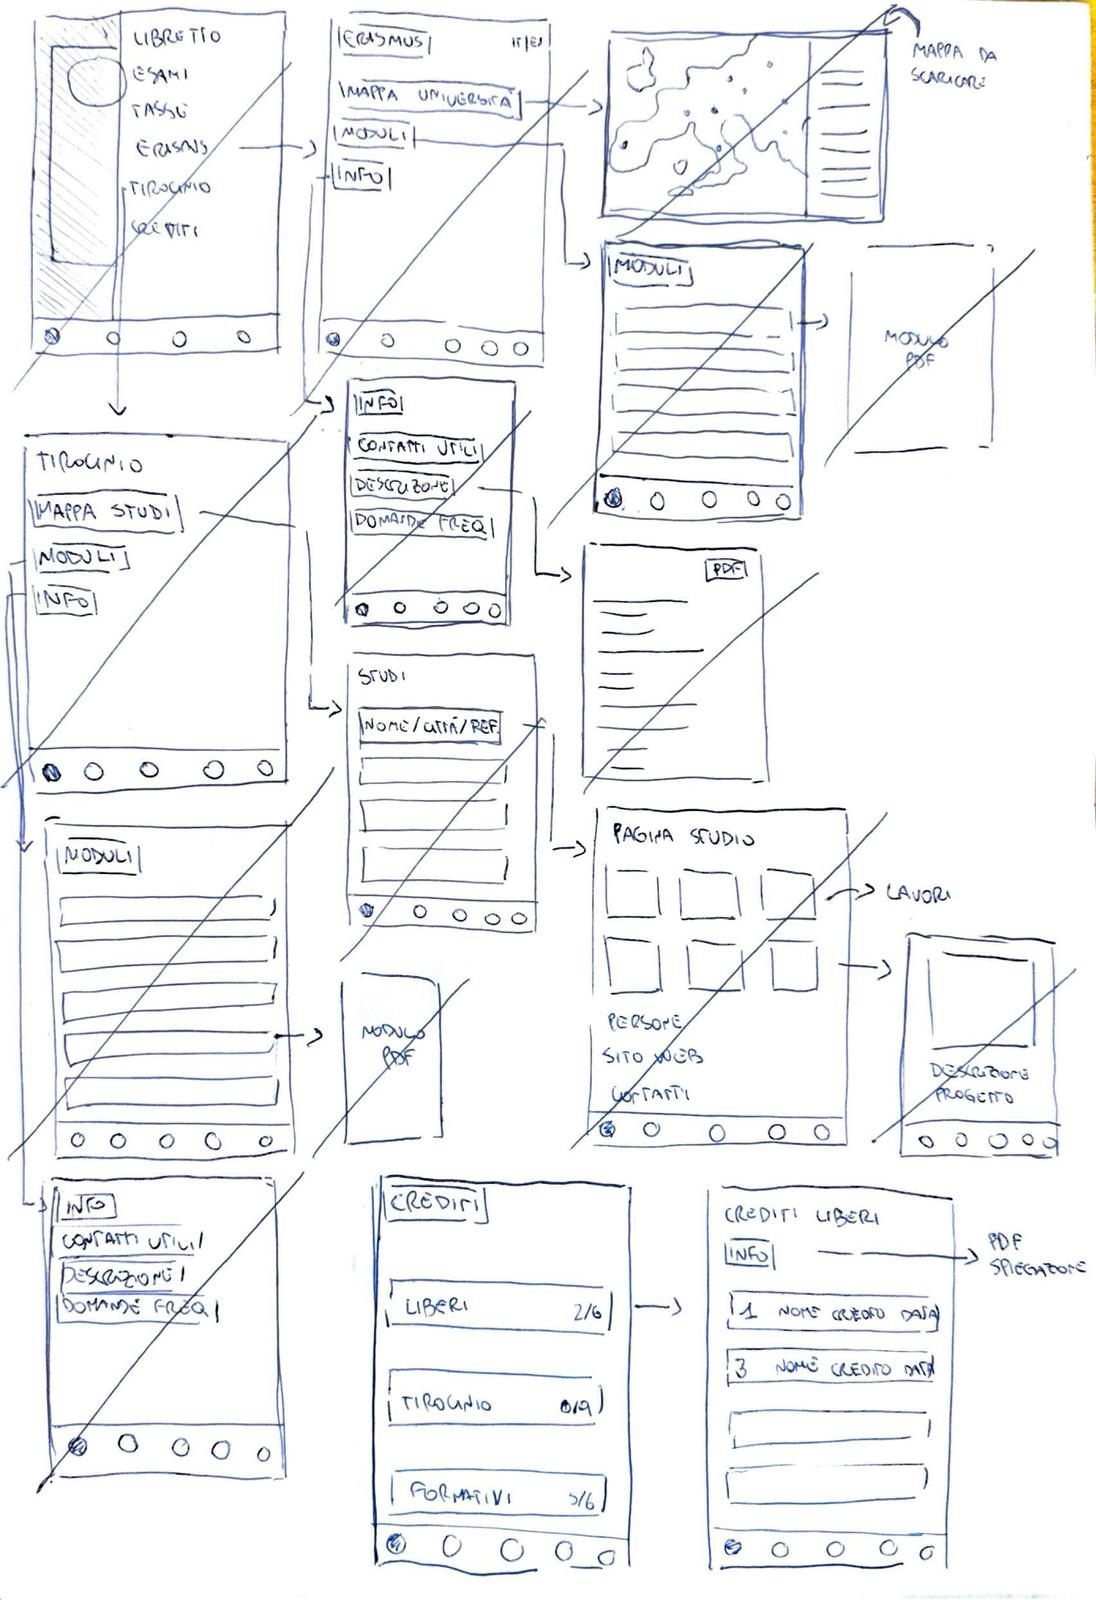 LIBRETTO
ESAMI
TASSE
ERASMUS
TIROCINIO
CREDITI
ERASMUS
MAPPA UNIVERSITÀ
MODULI
INFO
MAPPA DA
SCARICARE
MODULI
MODULO
PDF
INFO
CONTATTI UTILI
DESCRIZIONE
DOMANDE FREQ
PDF
TIROCINIO
MAPPA STUDI
MODULI
INFO
STUDI
NOME/CITTÀ/REF.
PAGINA STUDIO
LAVORI
PERSONE
SITO WEB
CONTATTI
DESCRIZIONE
PROGETTO
MODULI
MODULO
PDF
INFO
CONTATTI UTILI
DESCRIZIONE
DOMANDE FREQ
CREDITI
LIBERI 2/6
TIROCINIO 0/9
FORMATIVI 5/6
CREDITI LIBERI
INFO
PDF
SPIEGAZIONE
1 NOME CREDITO DATA
3 NOME CREDITO DATA